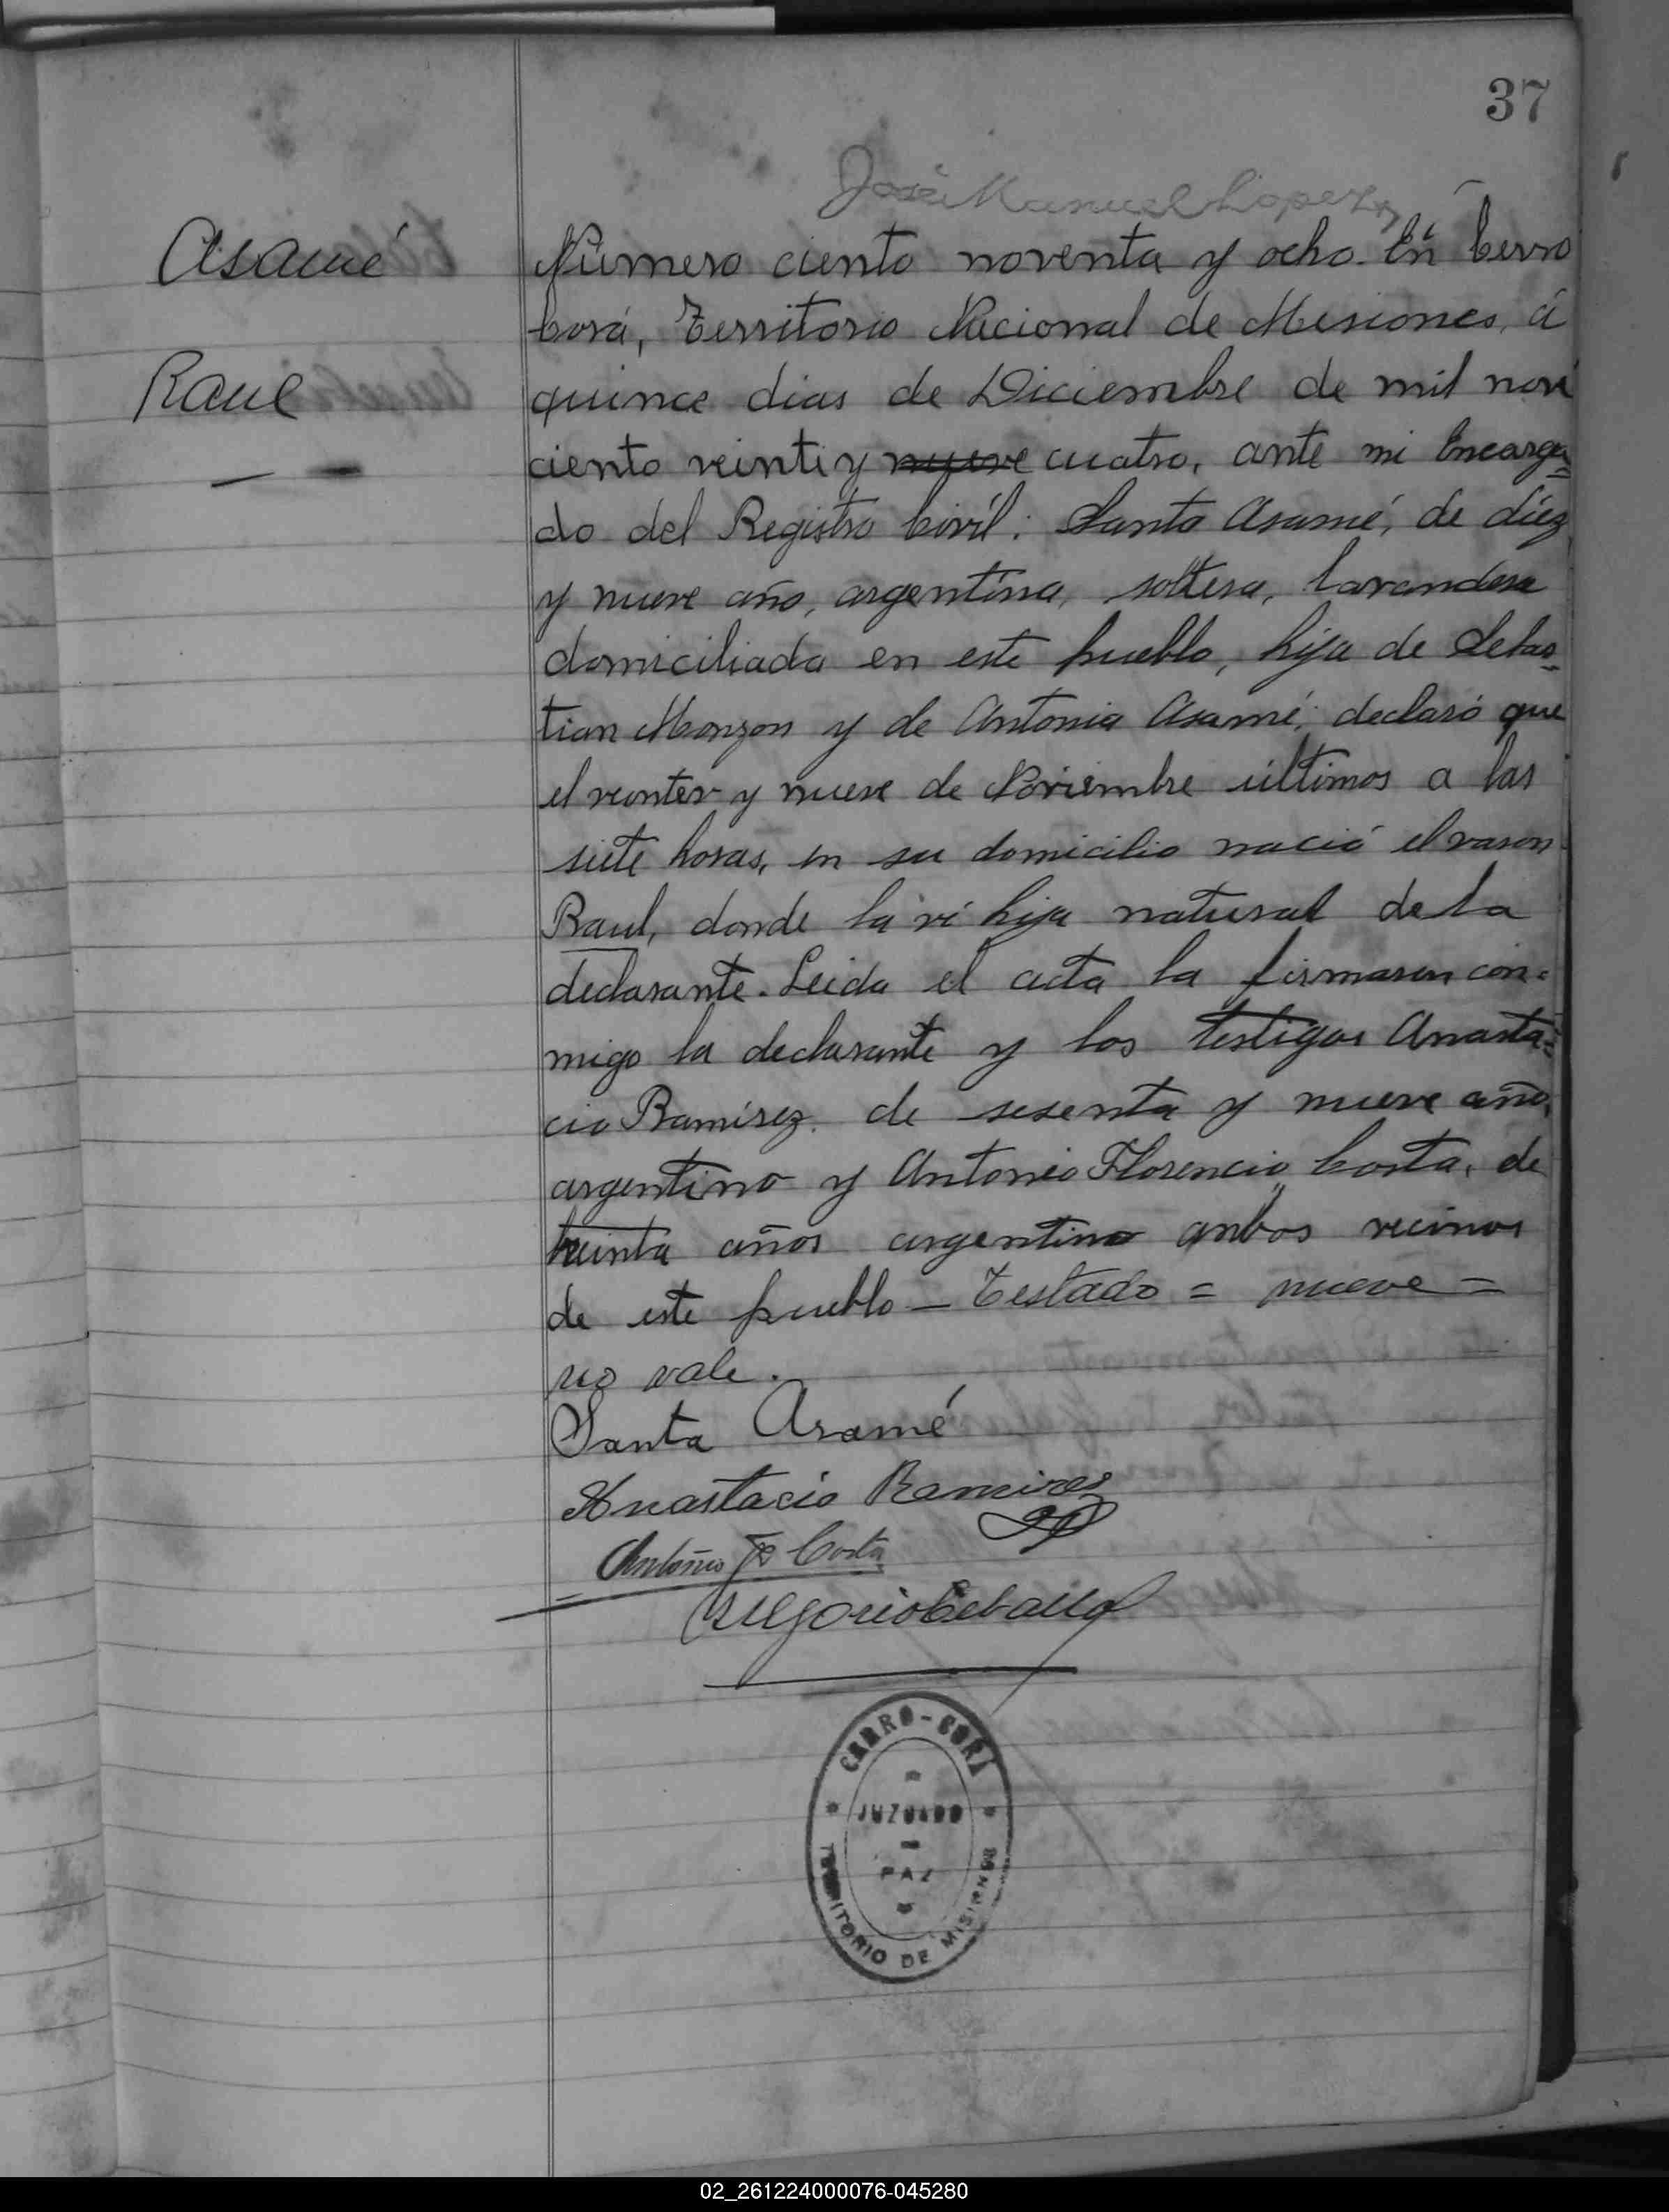 37
José Manuel Lopez
Asamé
Raul
Número ciento noventa y ocho. En Cerro
Corá, Territorio Nacional de Misiones, á
quince dias de Diciembre de mil nove
ciento veinti y nueve cuatro, ante mi Encarga=
do del Registro Civíl: Santa Asamé, de díez
y nueve año, argentína, soltera, lavandera
domiciliada en este pueblo, hija de Sebas=
tian Monzon y de Antonia Asamé; declaró que
el veintey y nueve de Noviembre últimos a las
siete horas, en su domicilio nació el varon
Raul, donde la ví hija natural de la
declarante. Leida el acta la firmaron con=
migo la declarante y los testigos Anasta=
cio Ramírez de sesenta y nueve año,
argentino y Antonio Florencio Costa, de
treinta años argentino anbos vecinos
de este pueblo — Testado = nueve =
no vale.
Santa Asamé
Anastacio Ramirez
Antonio F Costa
Gregorio Ceballo
CERRO-CORA
JUZGADO
PAZ
TERRITORIO DE MISIONES
02_261224000076-045280